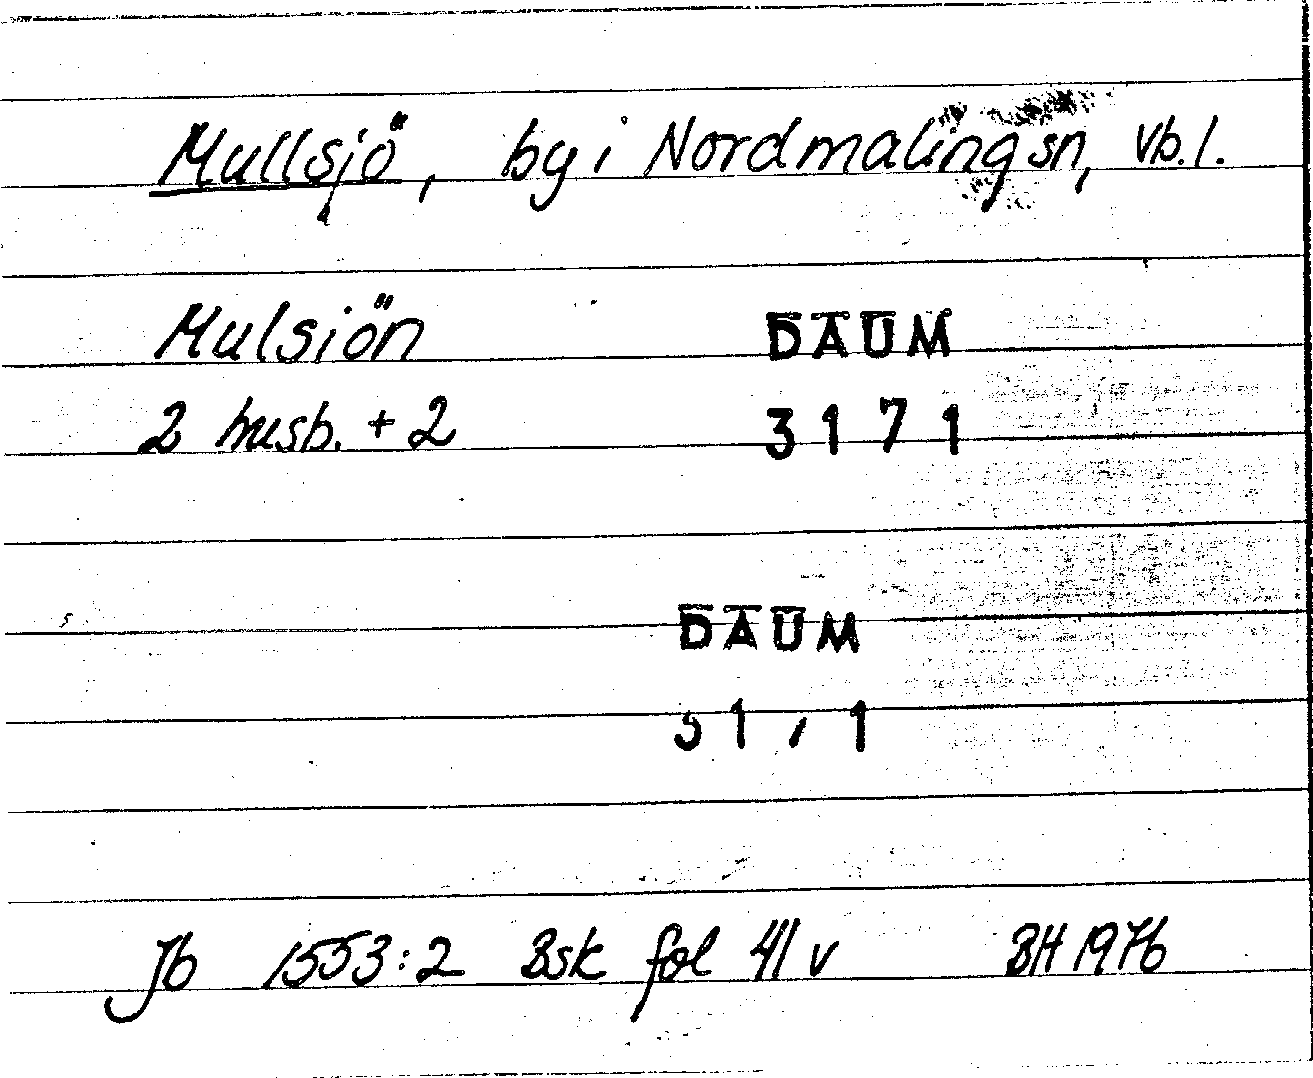 Mullsjö, by i Nordmaling sn, Vb. l.
Mulsiön DAUM
2 husb. + 2 3171
DAUM
3171
Jb 1553:2 Bsk fol 41 v BH 1976